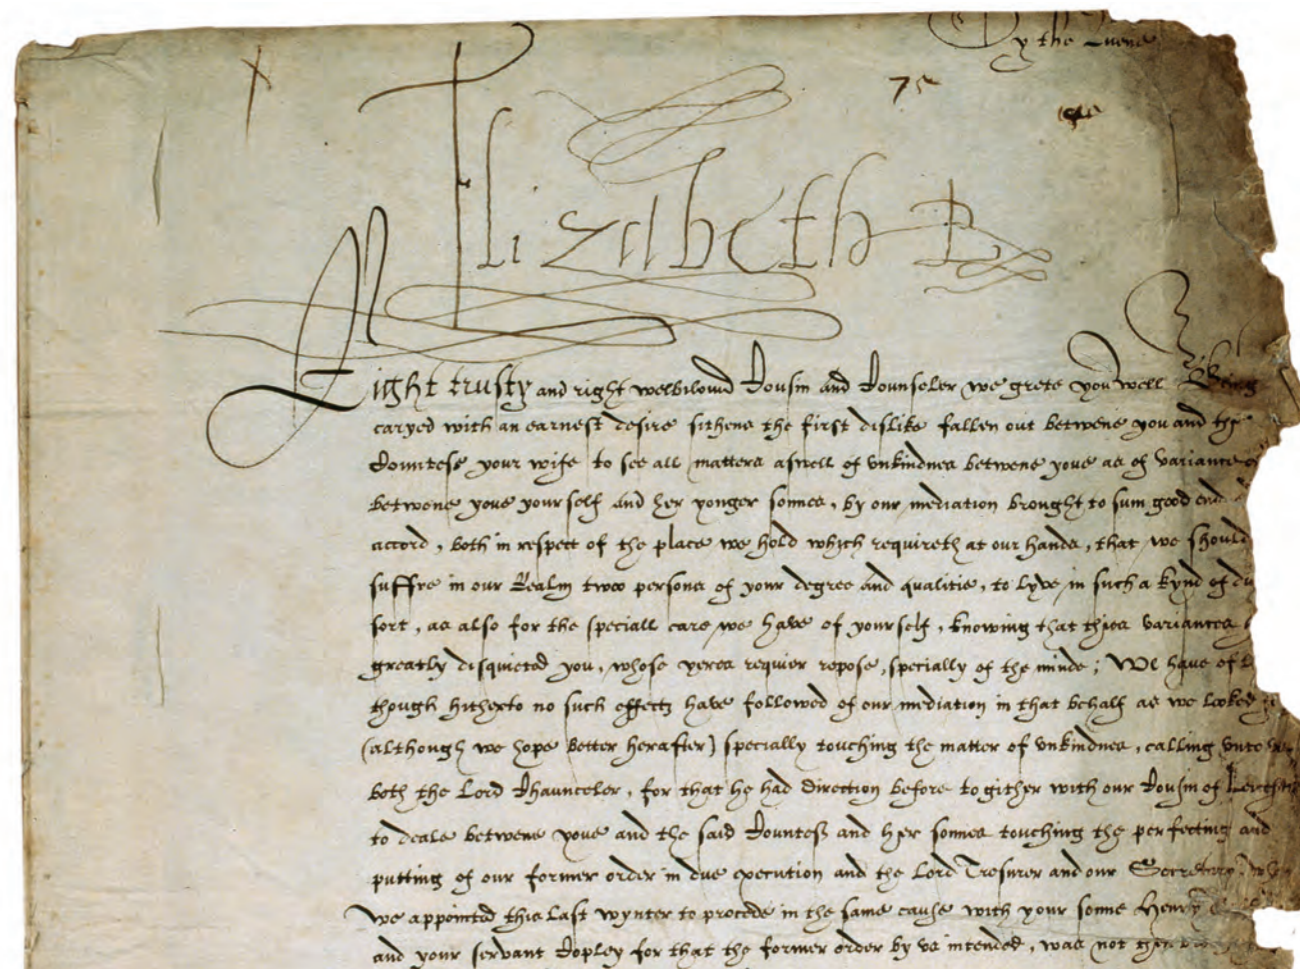 By the Quene
75
Elizabeth R
Right trusty and right welbiloued Cousin and Counseler we grete you well Being
caryed with an earnest desire sithens the first dislike fallen out betwene you and the
Countesse your wife to see all matters aswell of vnkindnes betwene youe as of variance
betwene youe your self and her yonger sonnes, by our mediation brought to sum good end
accord, both in respect of the place we hold which requireth at our handes, that we should
suffre in our Realm twoo persons of your degree and qualitie, to lyve in such a kynd of
sort, as also for the speciall care we have of your self, knowing that thies variances
greatly disquieted you, whose yeres requier repose, specially of the minde; We have of
though hitherto no such effectes have followed of our mediation in that behalf as we looked
(although we hope better herafter) specially touching the matter of vnkindnes, calling vnto
both the Lord Chaunceler, for that he had direction before togither with our Cousin of
to deale betwene youe and the said Countess and her sonnes touching the perfecting and
putting of our former order in due execution and the Lord Tresurer and our Secretary
We appointed this last wynter to procede in the same cause with your sonne Henry
and your servant Copley for that the former order by vs intended, was not